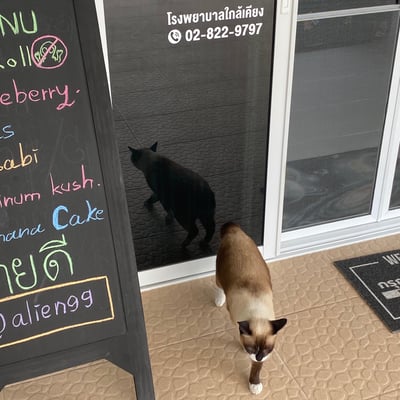 NU
Roll
eberry.
s
abi
inum kush.
nana Cake
ายดี
@alien99
โรงพยาบาลใกล้เคียง
02-822-9797